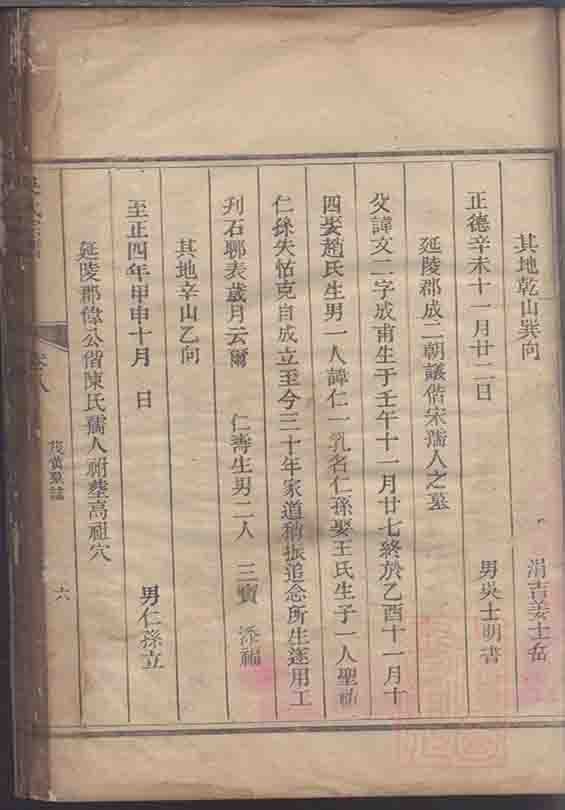 其地乾山巽向　涓吉姜士岳
正德辛未十一月廿二日　男吳士明書
延陵郡成二朝議偕宋孺人之墓
父諱文二字成甫生于壬午十一月廿七終於乙酉十一月十
四娶趙氏生男一人諱仁一乳名仁孫娶王氏生子一人聖祐
仁孫失怙克自成立至今二十年家道稍振追念所生遂用工
刋石聊表歲月云爾　仁壽生男二人　三寶　添福
其地辛山乙向
至正四年甲申十月　日　男仁孫立
延陵郡偉公偕陳氏孺人祔塟高祖穴
卷八　茂黃墓誌　六